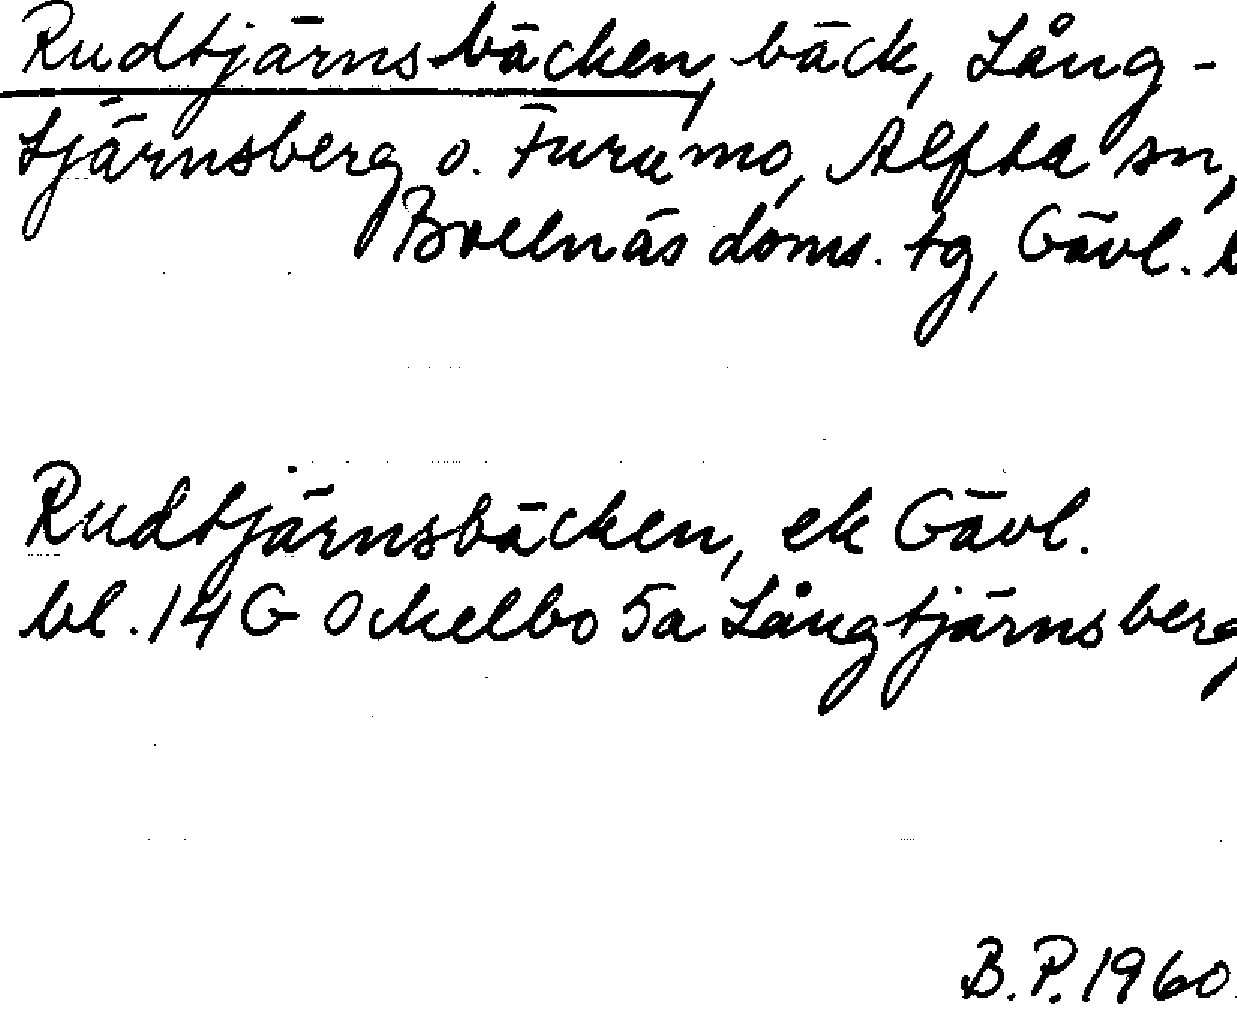 Rudtjärnsbäcken, bäck, Lång-
tjärnsberg o. Furumo, Alfta sn,
Bollnäs doms. tg, Gävl. l
Rudtjärnsbäcken, ek Gävl.
bl. 14 G Ockelbo 5a Långtjärnsberg
B.P. 1960.